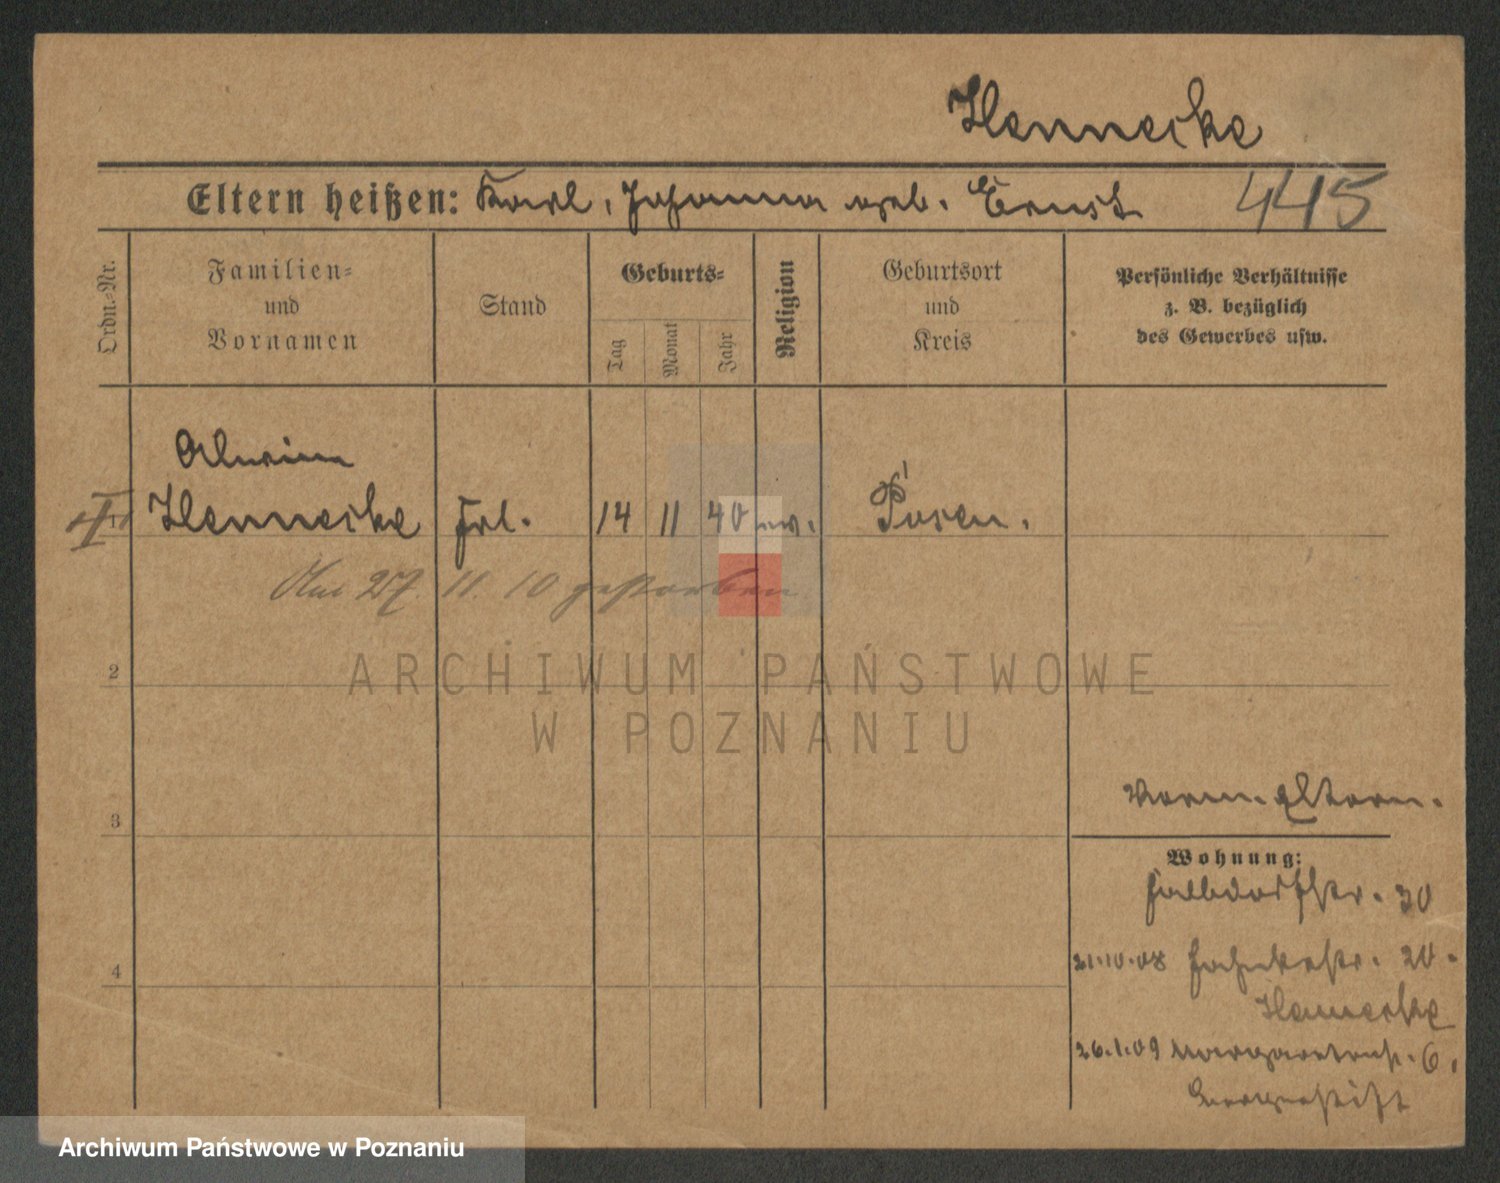 Hennecke
Eltern heißen: Karl, Johanna geb. Ernst 445
Ordn.-Nr.
Familien-
und
Vornamen
Stand
Geburts-
Tag
Monat
Jahr
Religion
Geburtsort
und
Kreis
Persönliche Verhältnisse
z. B. bezüglich
des Gewerbes usw.
Alwine
1 Hennecke Frl. 14 11 40 ev. Posen.
Am 27. 11. 10 gestorben
ARCHIWUM PAŃSTWOWE
W POZNANIU
2
3
4
Eltern.
Wohnung:
30
21.10.08 20.
Hennecke
26.1.09 Margaretenstr. 6.
Bürgerstift
Archiwum Państwowe w Poznaniu